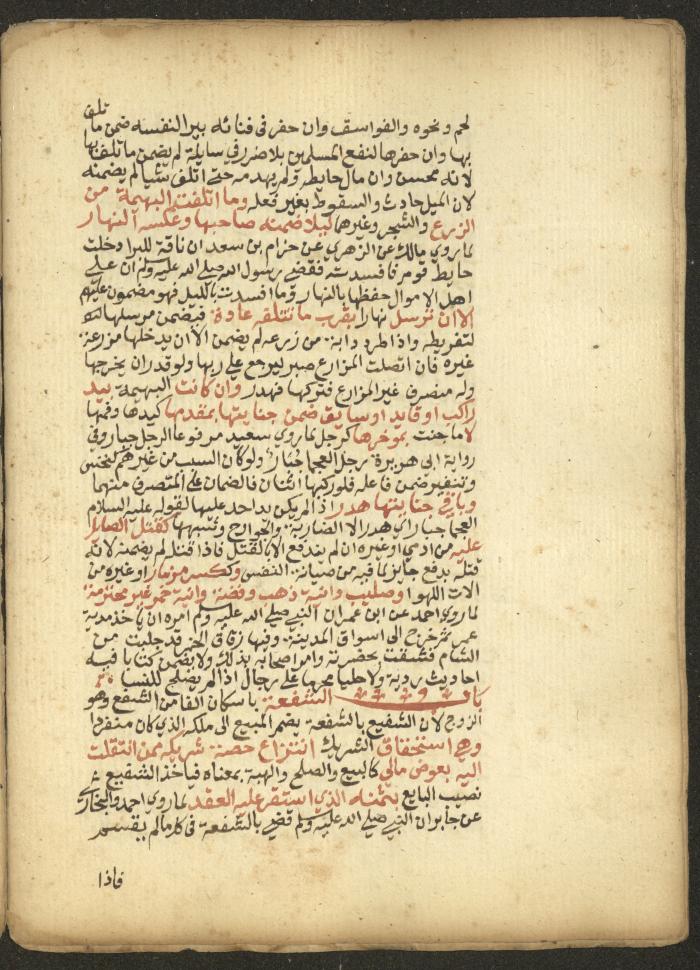 لحم ونحوه والفواسق وان حفر في فنائه بيرا لنفسه ضمن ما تلف
بها وان حفرها لنفع المسلمين بلا ضرر في سابلة لم يضمن ما تلف بها
لانه محسن وان مال حايطه ولم يهدمه حتى اتلف شيا لم يضمنه
لان الميل حادث والسقوط بغير فعله وما اتلفت البهيمة من
الزرع والشجر وغيرهما ليلا ضمنه صاحبها وعكسه النهار
لما روى مالك عن الزهري عن حزام بن سعد ان ناقة للبرا دخلت
حايط قوم فافسدته فقضى رسول الله صلى الله عليه وسلم ان على
اهل الاموال حفظها بالنهار وما افسدت بالليل فهو مضمون عليهم
الا ان ترسل نهارا بقرب ما تتلفه عادة فيضمن مرسلها
لتفريطه واذا طرد دابة من زرعه لم يضمن الا ان يدخلها مزرعة
غيره فان اتصلت المزارع صبر ليرجع على ربها ولو قدر ان يخرجها
وله منصرف غير المزارع فتركها فهدر وان كانت البهيمة بيد
راكب او قايد او سايق ضمن جنايتها بمقدمها كيدها وفمها
لا ما جنت بموخرها كرجل لما روى سعيد مرفوعا الرجل جبار وفي
رواية ابي هريرة رجل العجما جبار ولو كان السبب من غيرهم كنخس
وتنفير ضمن فاعله فلو ركبها اثنان فالضمان على المتصرف منهما
وباقي جنايتها هدر اذا لم يكن يد احد عليها لقوله عليه السلام
العجما جبار اي هدر الا الضارية والجوارح وشبهها كقتل الصايل
عليه من ادمي او غيره ان لم يندفع الا بالقتل فاذا قتله لم يضمنه لانه
قتله بدفع جايز لما فيه من صيانة النفس وكسر مزمار او غيره من
الات اللهو وصليب وانية ذهب وفضة وانية خمر غير محترمة
لما روى احمد عن ابن عمر ان النبي صلى الله عليه وسلم امره ان ياخذ مدية
ثم خرج الى اسواق المدينة وفيها زقاق الخمر قد جلبت من
الشام فشققت بحضرته وامر اصحابه بذلك ولا يضمن كتابا فيه
احاديث ردية ولا حليا محرما على رجال اذا لم يصلح للنسا
باب الشفعة باسكان الفا من الشفع وهو
الزوج لان الشفيع بالشفعة يضم المبيع الى ملكه الذي كان منفردا
وهي استحقاق الشريك انتزاع حصة شريكه ممن انتقلت
اليه بعوض مالي كالبيع والصلح والهبة بمعناه فياخذ الشفيع
نصيب البايع بثمنه الذي استقر عليه العقد لما روى احمد والبخاري
عن جابر ان النبي صلى الله عليه وسلم قضى بالشفعة في كل ما لم يقسم
فاذا